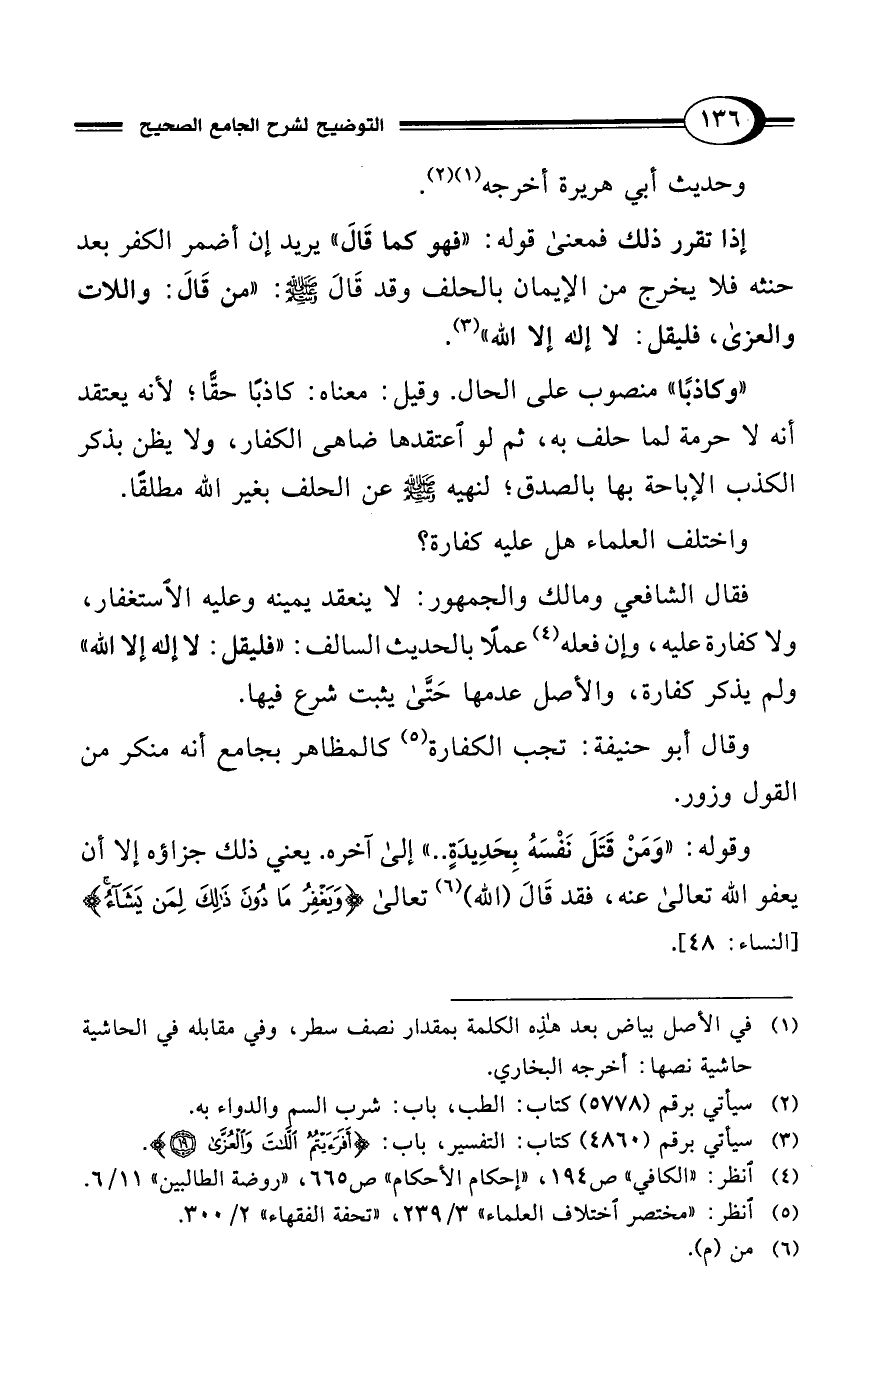 ١٣٦ التوضيح لشرح الجامع الصحيح
وحديث أبي هريرة أخرجه(١)(٢).
إذا تقرر ذلك فمعنىٰ قوله: «فهو كما قَالَ» يريد إن أضمر الكفر بعد
حنثه فلا يخرج من الإيمان بالحلف وقد قَالَ ﷺ: «من قَالَ: واللات
والعزىٰ، فليقل: لا إله إلا الله»(٣).
«وكاذبًا» منصوب على الحال. وقيل: معناه: كاذبًا حقًّا؛ لأنه يعتقد
أنه لا حرمة لما حلف به، ثم لو ٱعتقدها ضاهى الكفار، ولا يظن بذكر
الكذب الإباحة بها بالصدق؛ لنهيه ﷺ عن الحلف بغير الله مطلقًا.
واختلف العلماء هل عليه كفارة؟
فقال الشافعي ومالك والجمهور: لا ينعقد يمينه وعليه الٱستغفار،
ولا كفارة عليه، وإن فعله(٤) عملًا بالحديث السالف: «فليقل: لا إله إلا الله»
ولم يذكر كفارة، والأصل عدمها حَتَّىٰ يثبت شرع فيها.
وقال أبو حنيفة: تجب الكفارة(٥) كالمظاهر بجامع أنه منكر من
القول وزور.
وقوله: «وَمَنْ قَتَلَ نَفْسَهُ بِحَدِيدَةٍ..» إلىٰ آخره. يعني ذلك جزاؤه إلا أن
يعفو الله تعالىٰ عنه، فقد قَالَ (الله)(٦) تعالىٰ ﴿وَيَغْفِرُ مَا دُونَ ذَٰلِكَ لِمَن يَشَآءُۚ﴾
[النساء: ٤٨].
(١) في الأصل بياض بعد هٰذِه الكلمة بمقدار نصف سطر، وفي مقابله في الحاشية
حاشية نصها: أخرجه البخاري.
(٢) سيأتي برقم (٥٧٧٨) كتاب: الطب، باب: شرب السم والدواء به.
(٣) سيأتي برقم (٤٨٦٠) كتاب: التفسير، باب: ﴿أَفَرَءَيْتُمُ ٱللَّٰتَ وَٱلْعُزَّىٰ ١٩﴾.
(٤) ٱنظر: «الكافي» ص١٩٤، «إحكام الأحكام» ص٦٦٥، «روضة الطالبين» ٦/١١.
(٥) ٱنظر: «مختصر ٱختلاف العلماء» ٢٣٩/٣، «تحفة الفقهاء» ٢/ ٣٠٠.
(٦) من (م).